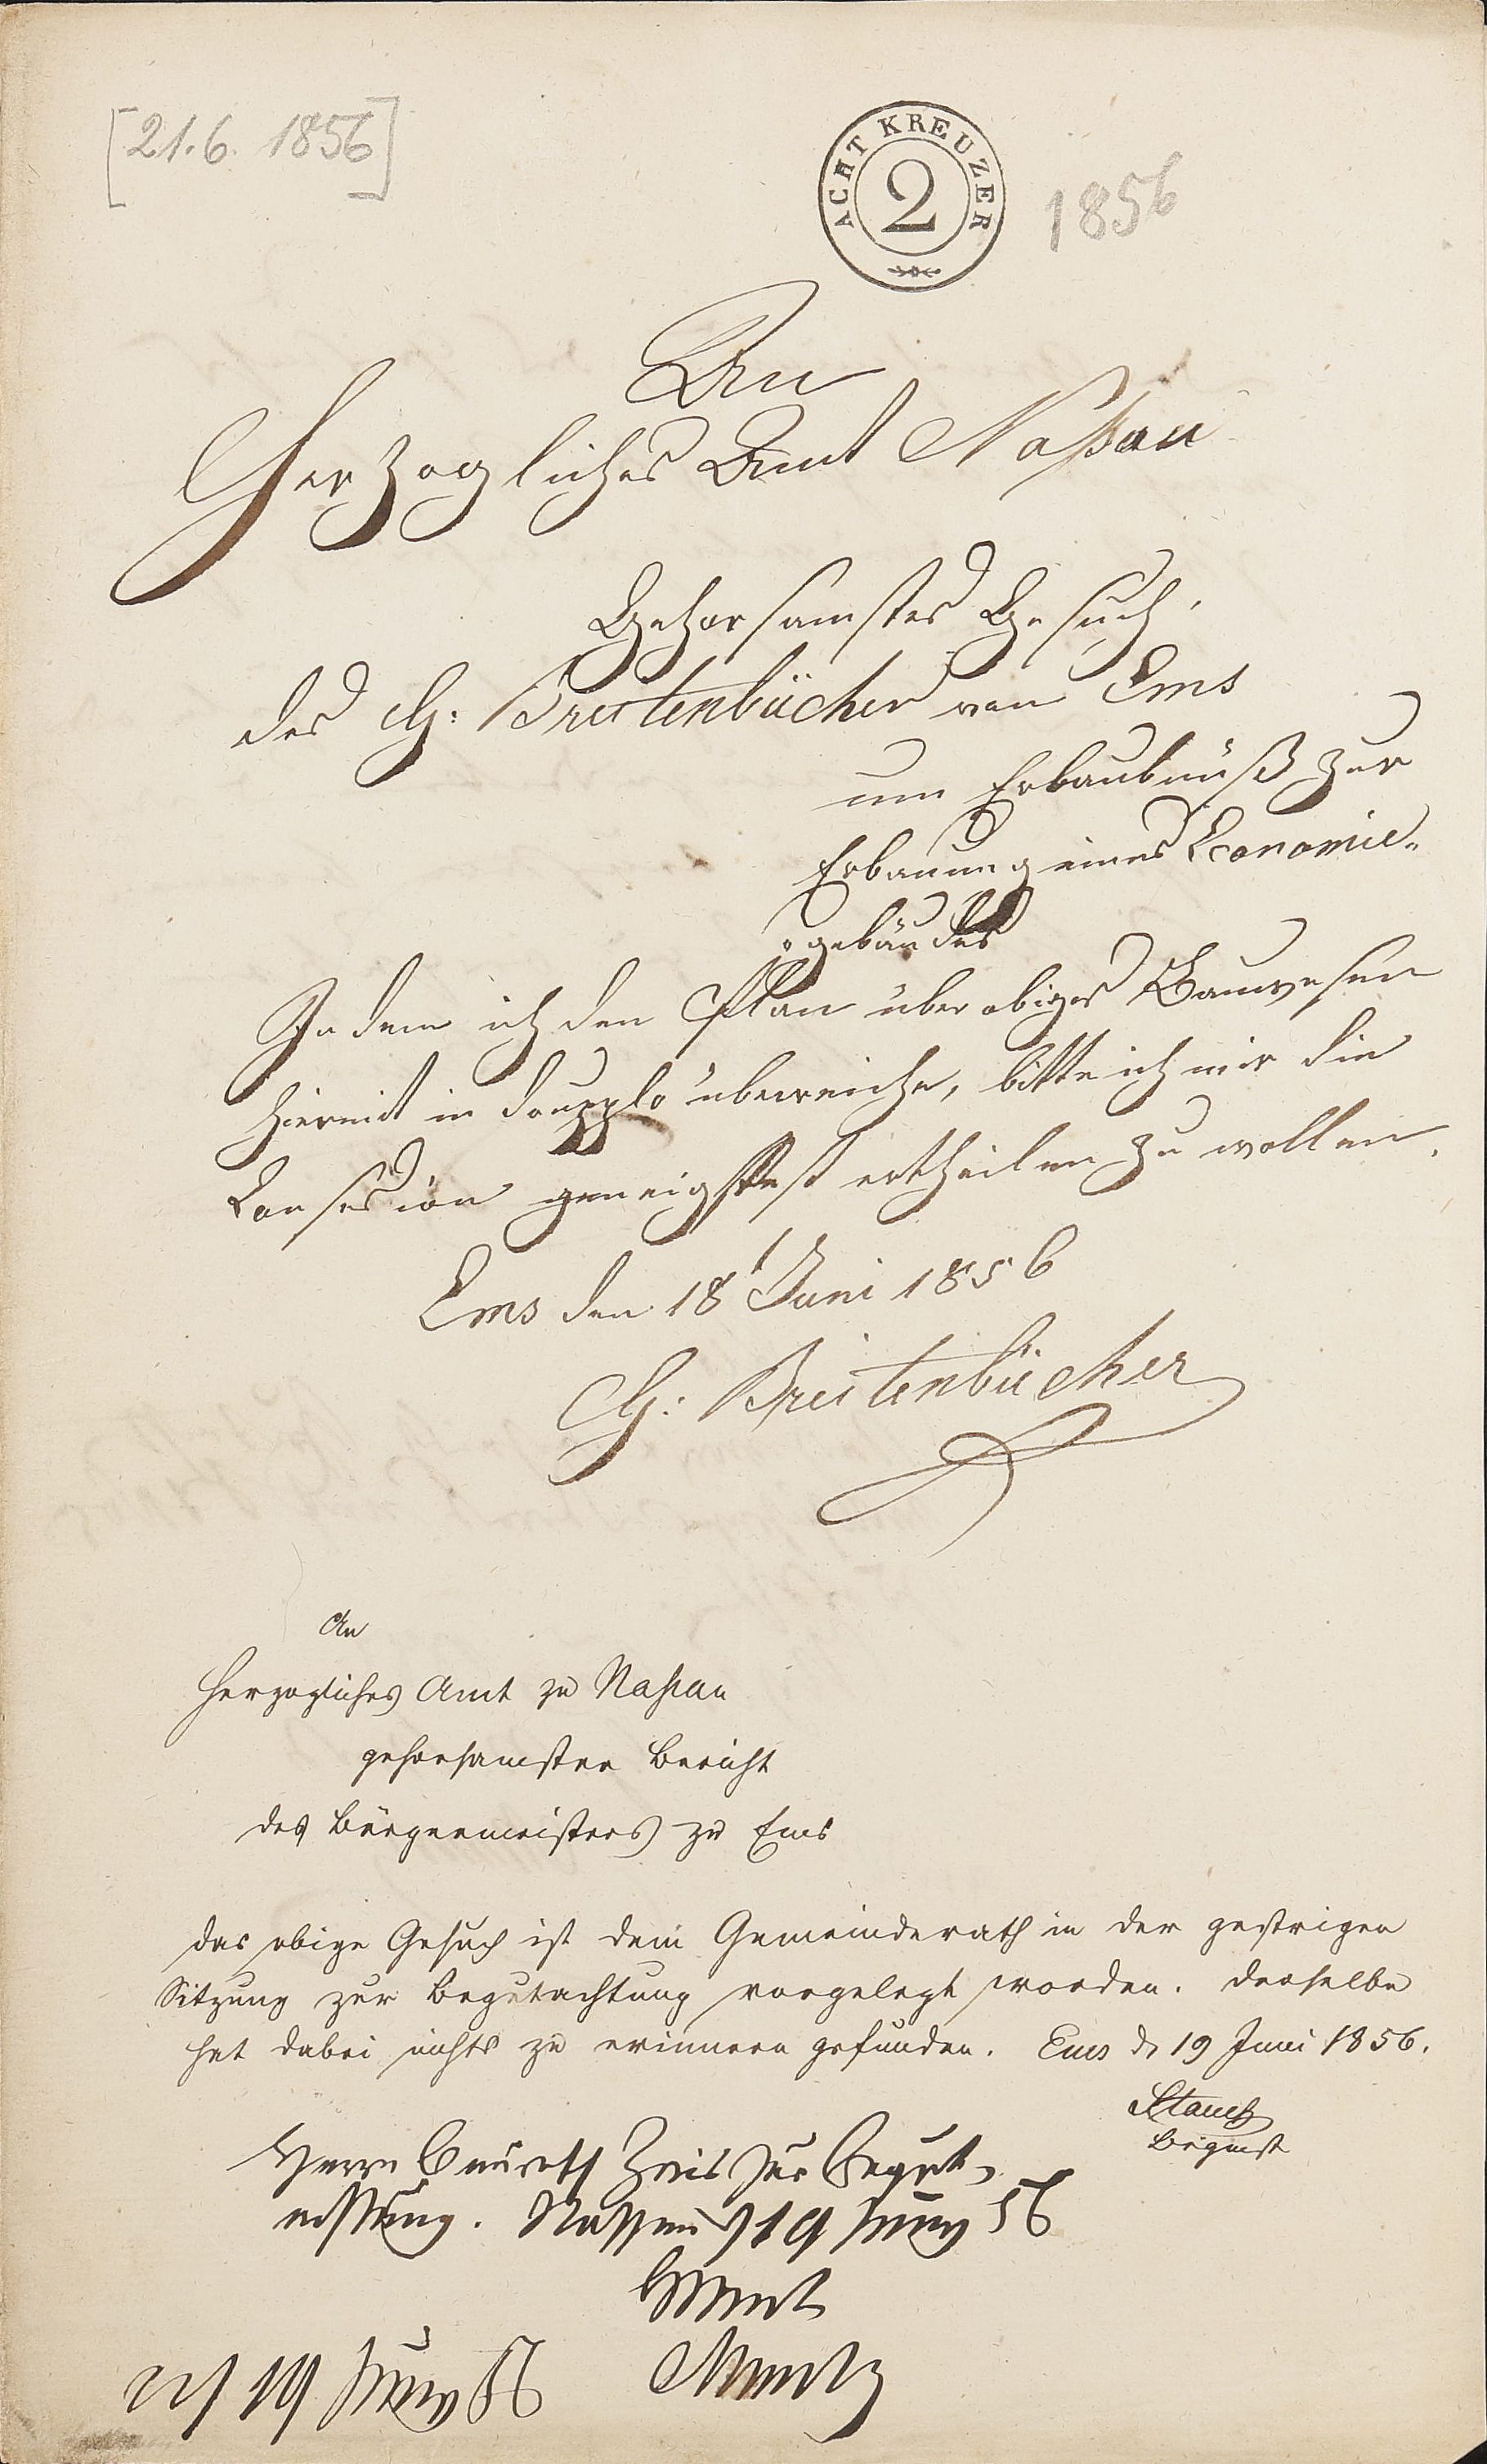 [21.6. 1856]
ACHT KREUZER
2
1856
An
Herzogliches Amt Naßau
Gehorsamstes Gesuch
des Ch: Breitenbücher von Ems
um Erbaubnüß zur
Erbauung eines Economie-
gebäudes
In dem ich den Plan über obiges Bauwesen
hiermit in doupplo überreiche, bitte ich mir die
Consesion geneigtest ertheilen zu wollen.
Ems den 18t Juni 1856
Ch: Breitenbücher
An
Herzogliches Amt zu Naßau
gehorsamster Bericht
des Bürgermeisters zu Ems
das obige Gesuch ist dem Gemeinderath in der gestrigen
Sitzung zur Begutachtung vorgelegt worden. derselbe
hat dabei nichts zu erinnern gefunden. Ems d 19 Juni 1856.
Herrn Baurath Zais zur Begut-
achtung. Nassau 19 Juny 56
19 Juny 56